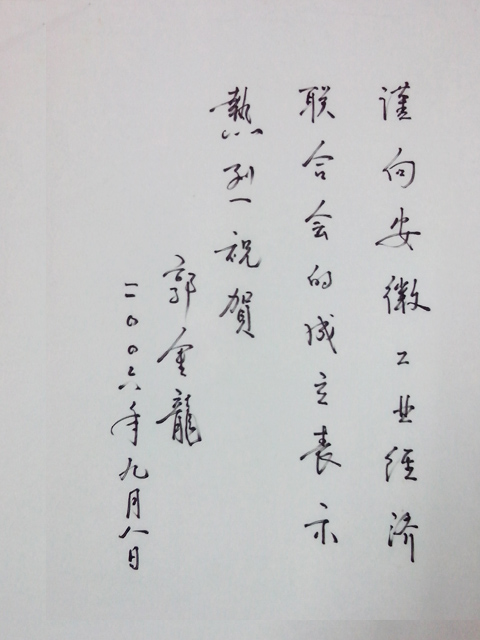 謹向安徽工业经济
联合会的成立表示
熱烈祝賀
郭金龍
二〇〇六年九月八日